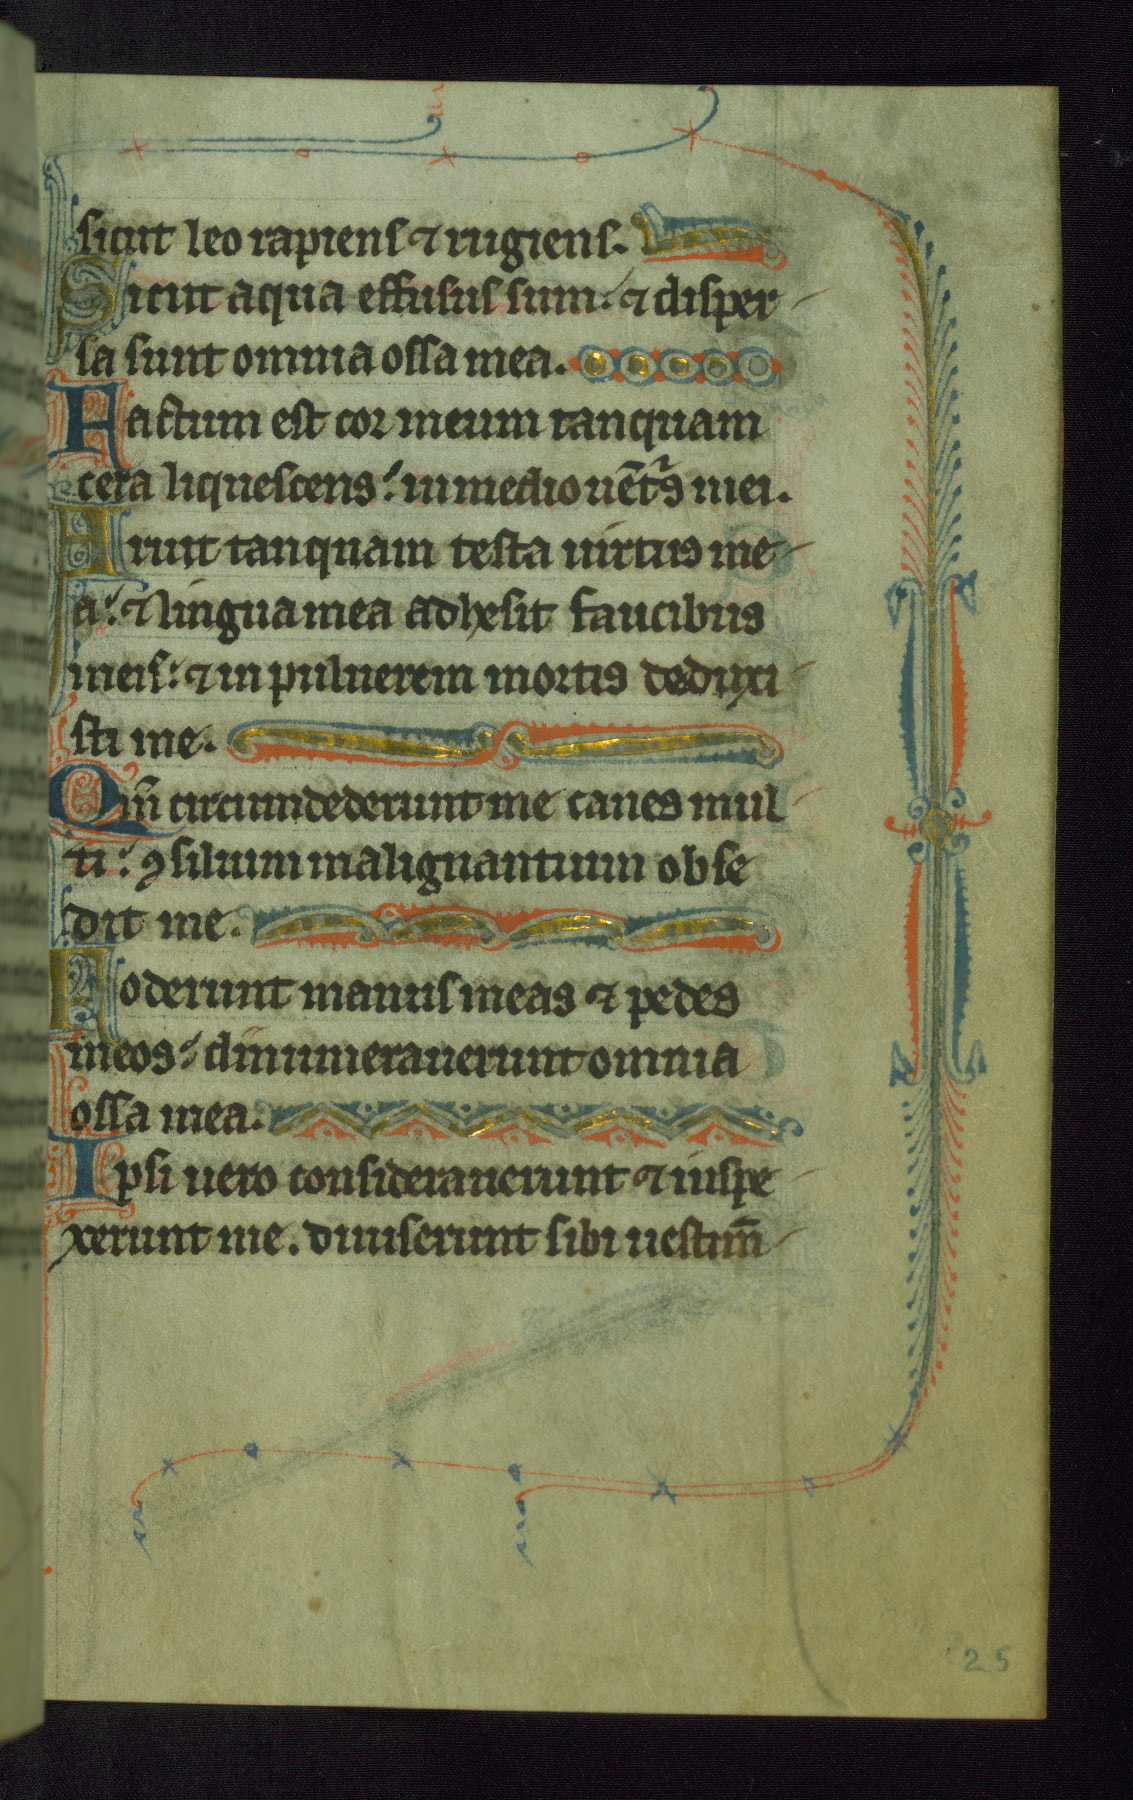 sicut leo rapiens ⁊ rugiens.
Sicut aqua effusus sum: ⁊ disper
sa sunt omnia ossa mea.
Factum est cor meum tanquam
cera liquescens: in medio uẽtͥs mei.
Aruit tanquam testa uirtus me
a: ⁊ lingua mea adhesit faucibus
meis: ⁊ in puluerem mortis deduxi
sti me.
Qm̃ circumdederunt me canes mul
ti: ꝯsilium malignantium obse
dit me.
Foderunt manus meas ⁊ pedes
meos: dinumerauerunt omnia
ossa mea.
Ipsi uero considerauerunt ⁊ inspe
xerunt me. diuiserunt sibi uestim̃
25